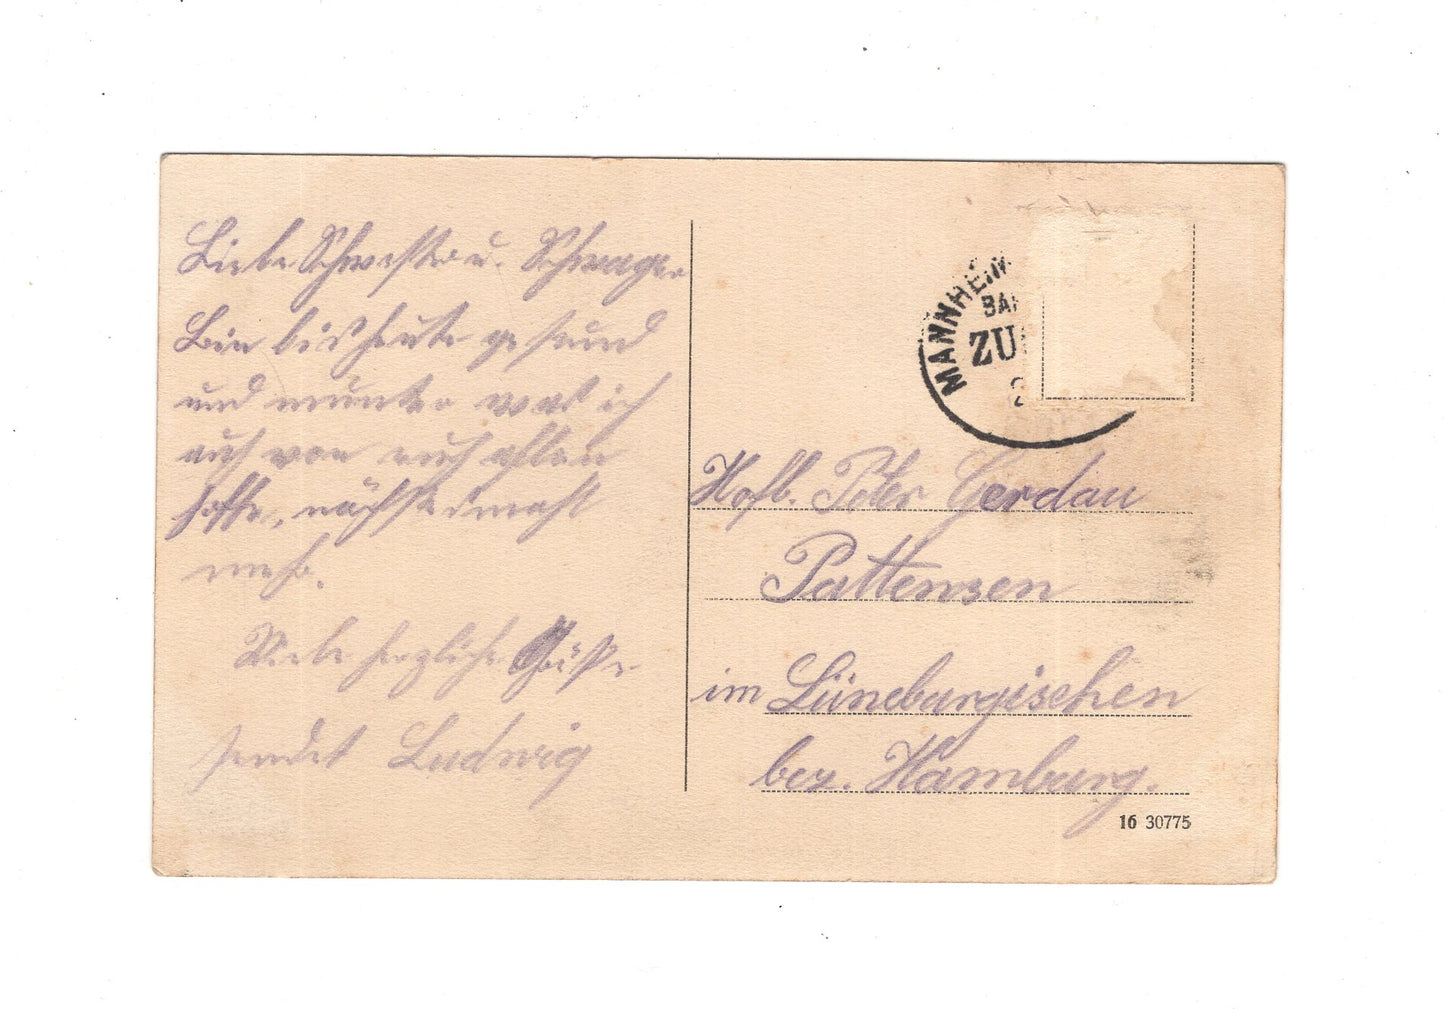 Liebe Schwester u. Schwager
Bin bis heute gesund
und munter was ich
auch von euch allen
hoffe, nächstesmahl
mehr.
Viele herzliche Grüße
sendet Ludwig
MANNHEIM
BA
ZU
2
Hofb. Peter Gerdau
Pattensen
im Lüneburgischen
bez. Hamburg.
16 30775